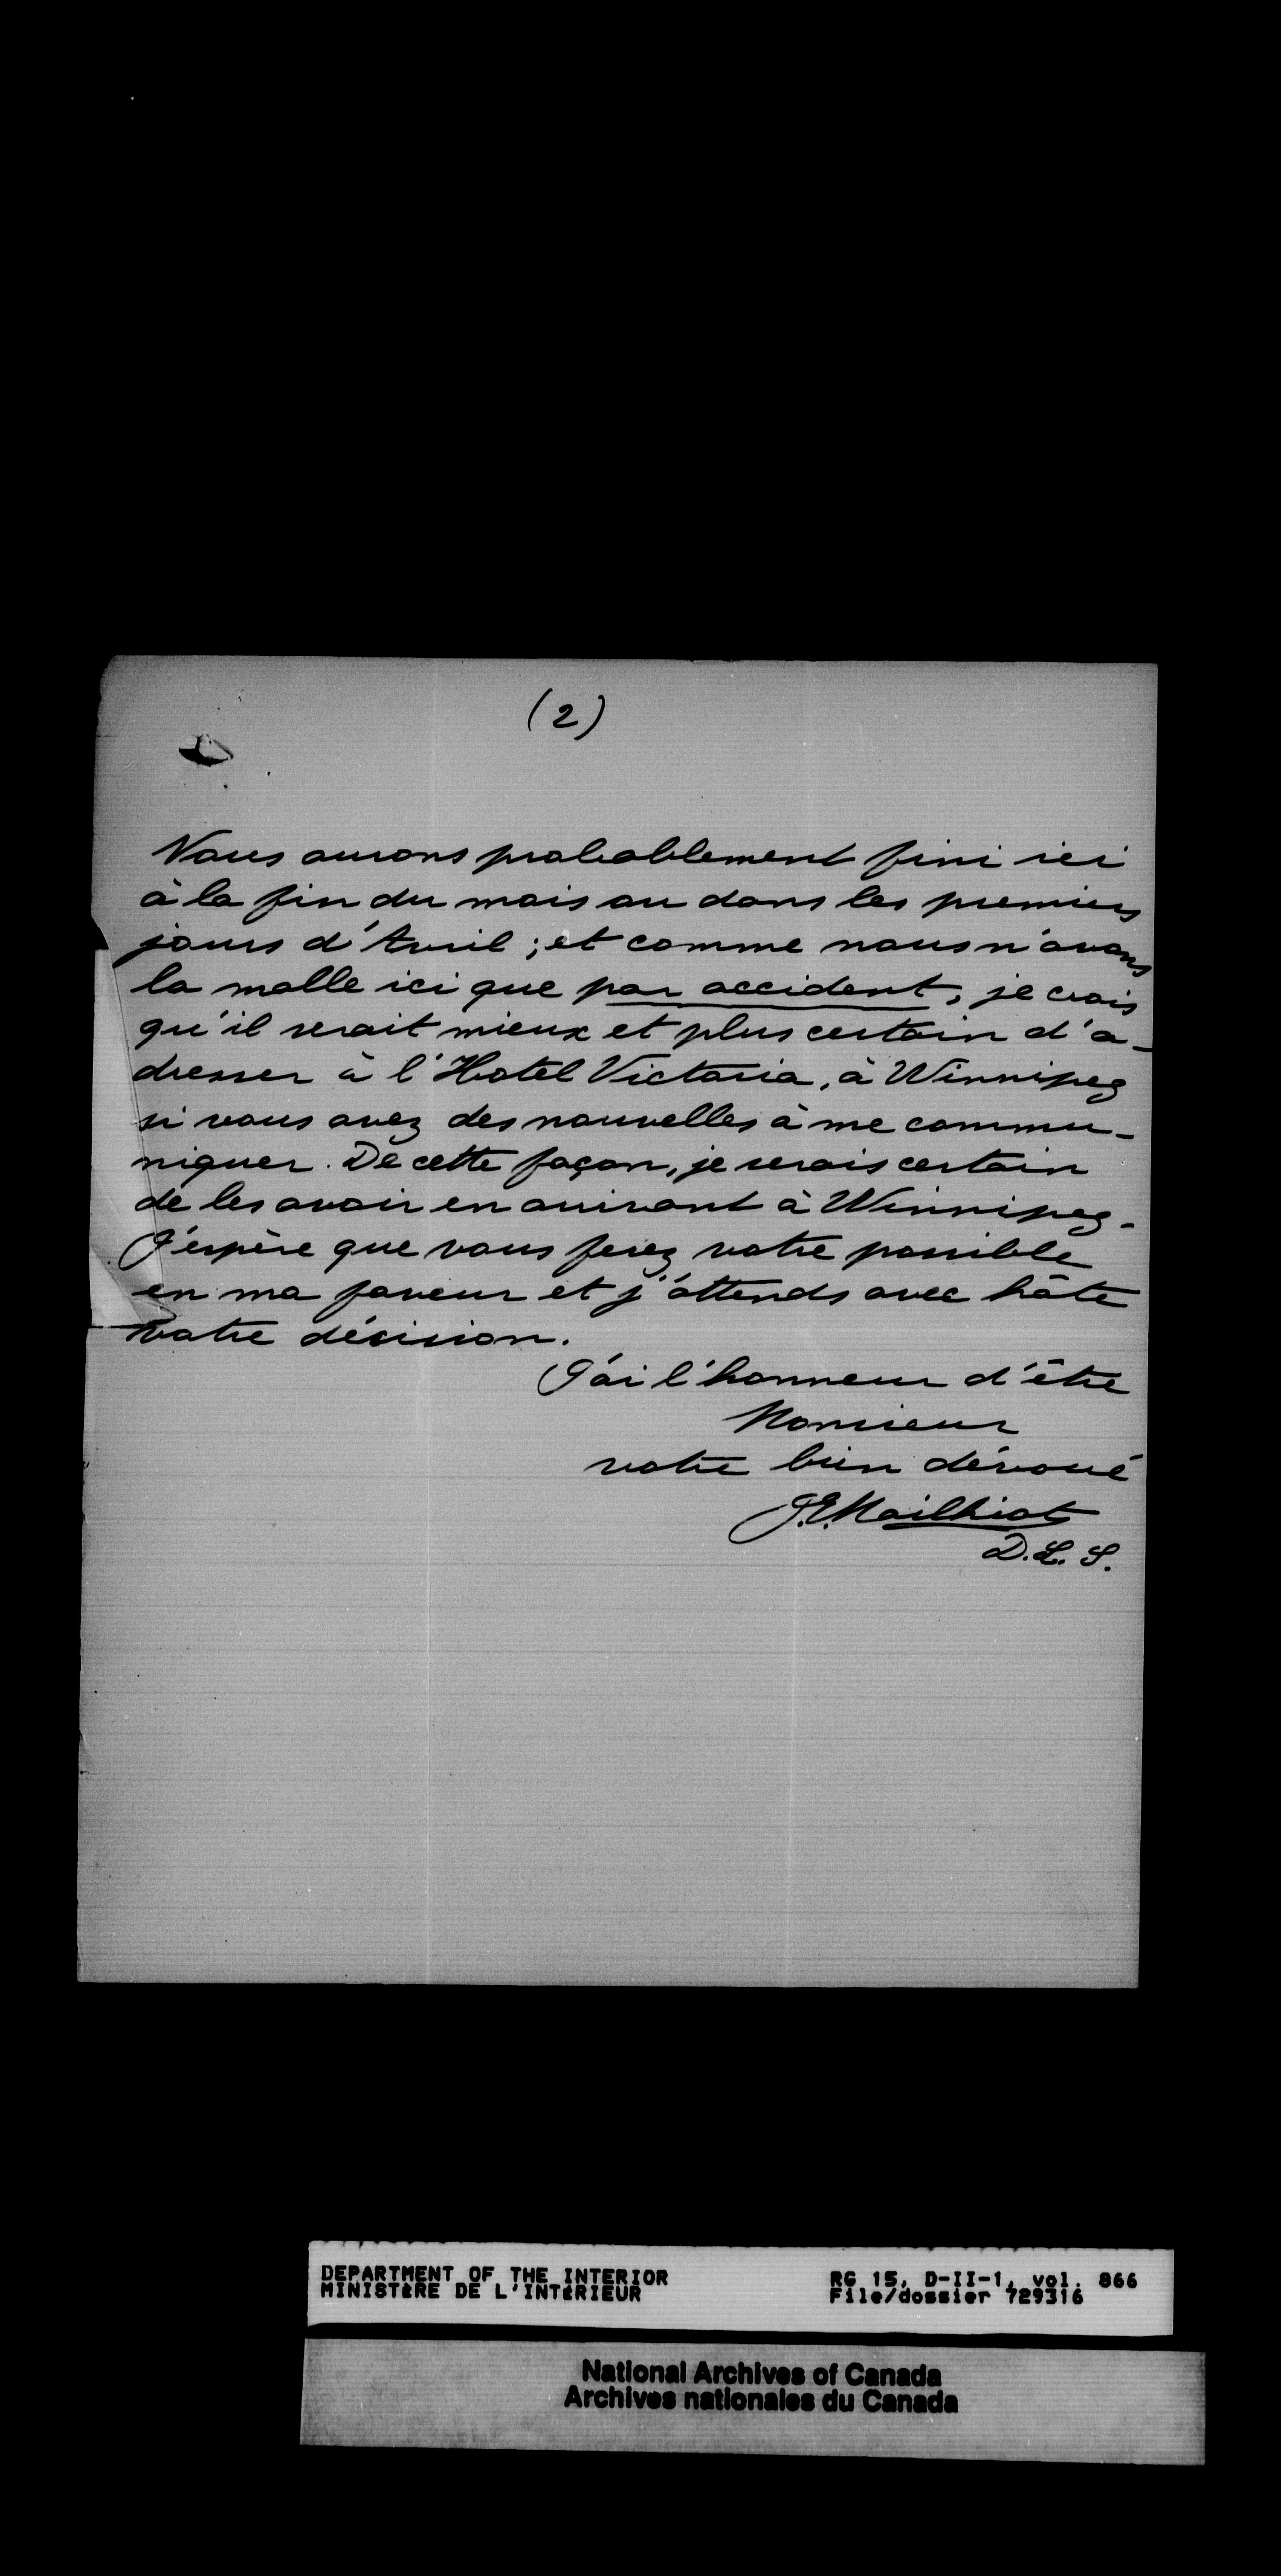 (2)
Nous aurons probablement fini ici
à la fin du mois ou dans les premiers
jours d'Avril ; et comme nous n'avons
la malle ici que par accident, je crois
qu'il serait mieux et plus certain d'a-
dresser à l'Hotel Victoria, à Winnipeg
si vous avez des nouvelles à me commu-
niquer. De cette façon, je serais certain
de les avoir en arrivant à Winnipeg.
J'espère que vous ferez votre possible
en ma faveur et j'attends avec hâte
votre décision.
J'ai l'honneur d'être
Monsieur
votre bien dévoué
J.E. Mailhiot
D.L.S.
DEPARTMENT OF THE INTERIOR
MINISTÈRE DE L'INTÉRIEUR
RG 15, D-II-1, vol. 866
File/dossier 729316
National Archives of Canada
Archives nationales du Canada